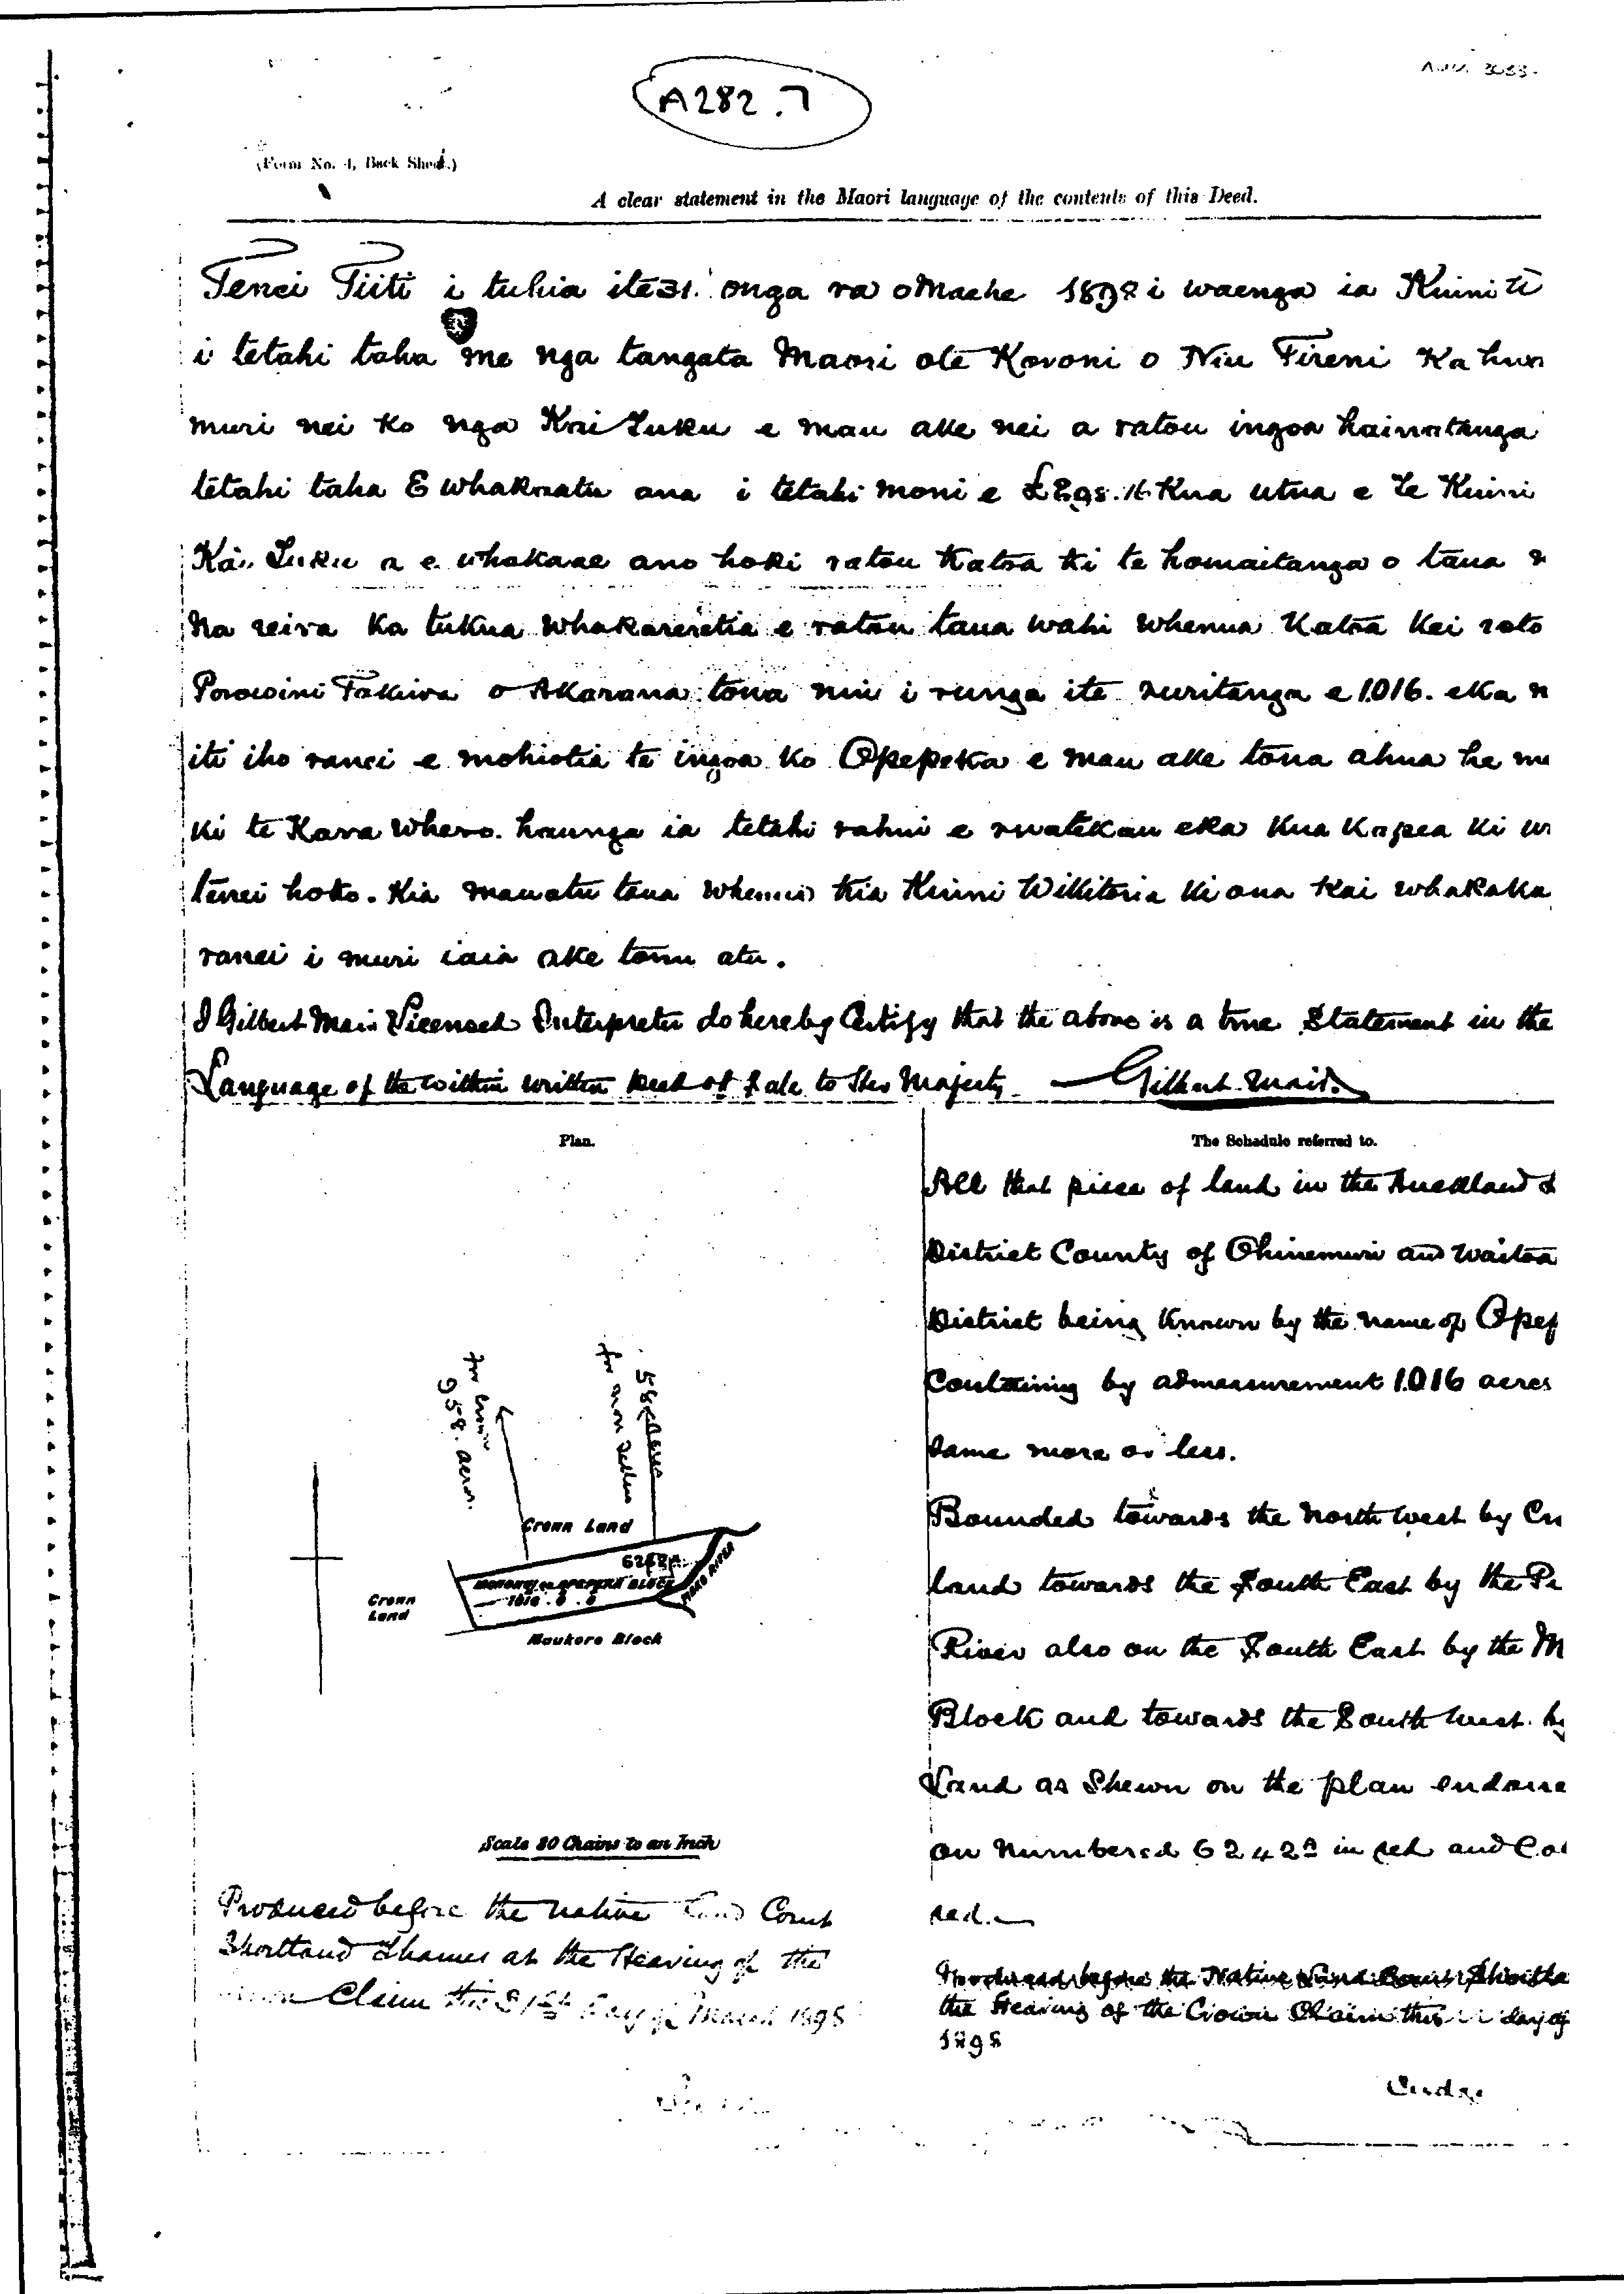 A282.7
(Form No. 4, Back Sheet.)
A clear statement in the Maori language of the contents of this Deed.
Tenei Tiiti i tuhia ite 31 onga ra o Maehe 1898 i waenga ia Kuini te
i tetahi taha me nga tangata Maori ote Koroni o Niu Tireni Ka hua
muri nei ko nga Kai Tuku e mau ake nei a ratou ingoa hainatanga
tetahi taha E whakaatu ana i tetahi moni e Kua utua e Te Kuini
Kai Tuku a e whakaae ano hoki ratou Katoa ki te homaitanga o taua
Na reira Ka tukua Whakareretia e ratou taua wahi Whenua Katoa Kei roto
Porowini Takiwa o Akarana tona nui i runga ite ruritanga e 1016. eka
iti iho ranei e mohiotia te ingoa ko Opepeka e mau ake tona ahua he
ki te Kara Whero. haunga ia tetahi rahui e ruatekau eka Kua Kapea ki
tenei hoko. Kia mau atu taua Whenua kia Kuini Wikitoria ki ona Kai whakaka
ranei i muri iaia ake tonu atu.
I Gilbert Mair Licensed Interpreter do hereby Certify that the above is a true Statement in the
Language of the within written Deed of Sale to Her Majesty Gilbert Mair.
Plan.
for Crown
958. acres.
58 acres
for non sellers
Crown Land
6242A
OPEPEKA BLOCK
1016. 0. 0
RIVER
Crown
Land
Maukoro Block
Scale 80 Chains to an Inch
Produced before the Native Land Court
Shortland Thames at the Hearing of the
Claim this 31st day of March 1898
The Schedule referred to.
All that piece of land in the Auckland
District County of Ohinemuri and Waitoa
District being known by the name of Opep
Containing by admeasurement 1016 acres
same more or less.
Bounded towards the North West by Cr
land towards the South East by the Pi
River also on the South East by the M
Block and towards the South West by
Land as Shewn on the plan endorse
on Numbered 6242A in red and Col
red.
Produced before the Native Land Court Shortla
the Hearing of the Crown Claim this day of
1898
Judge